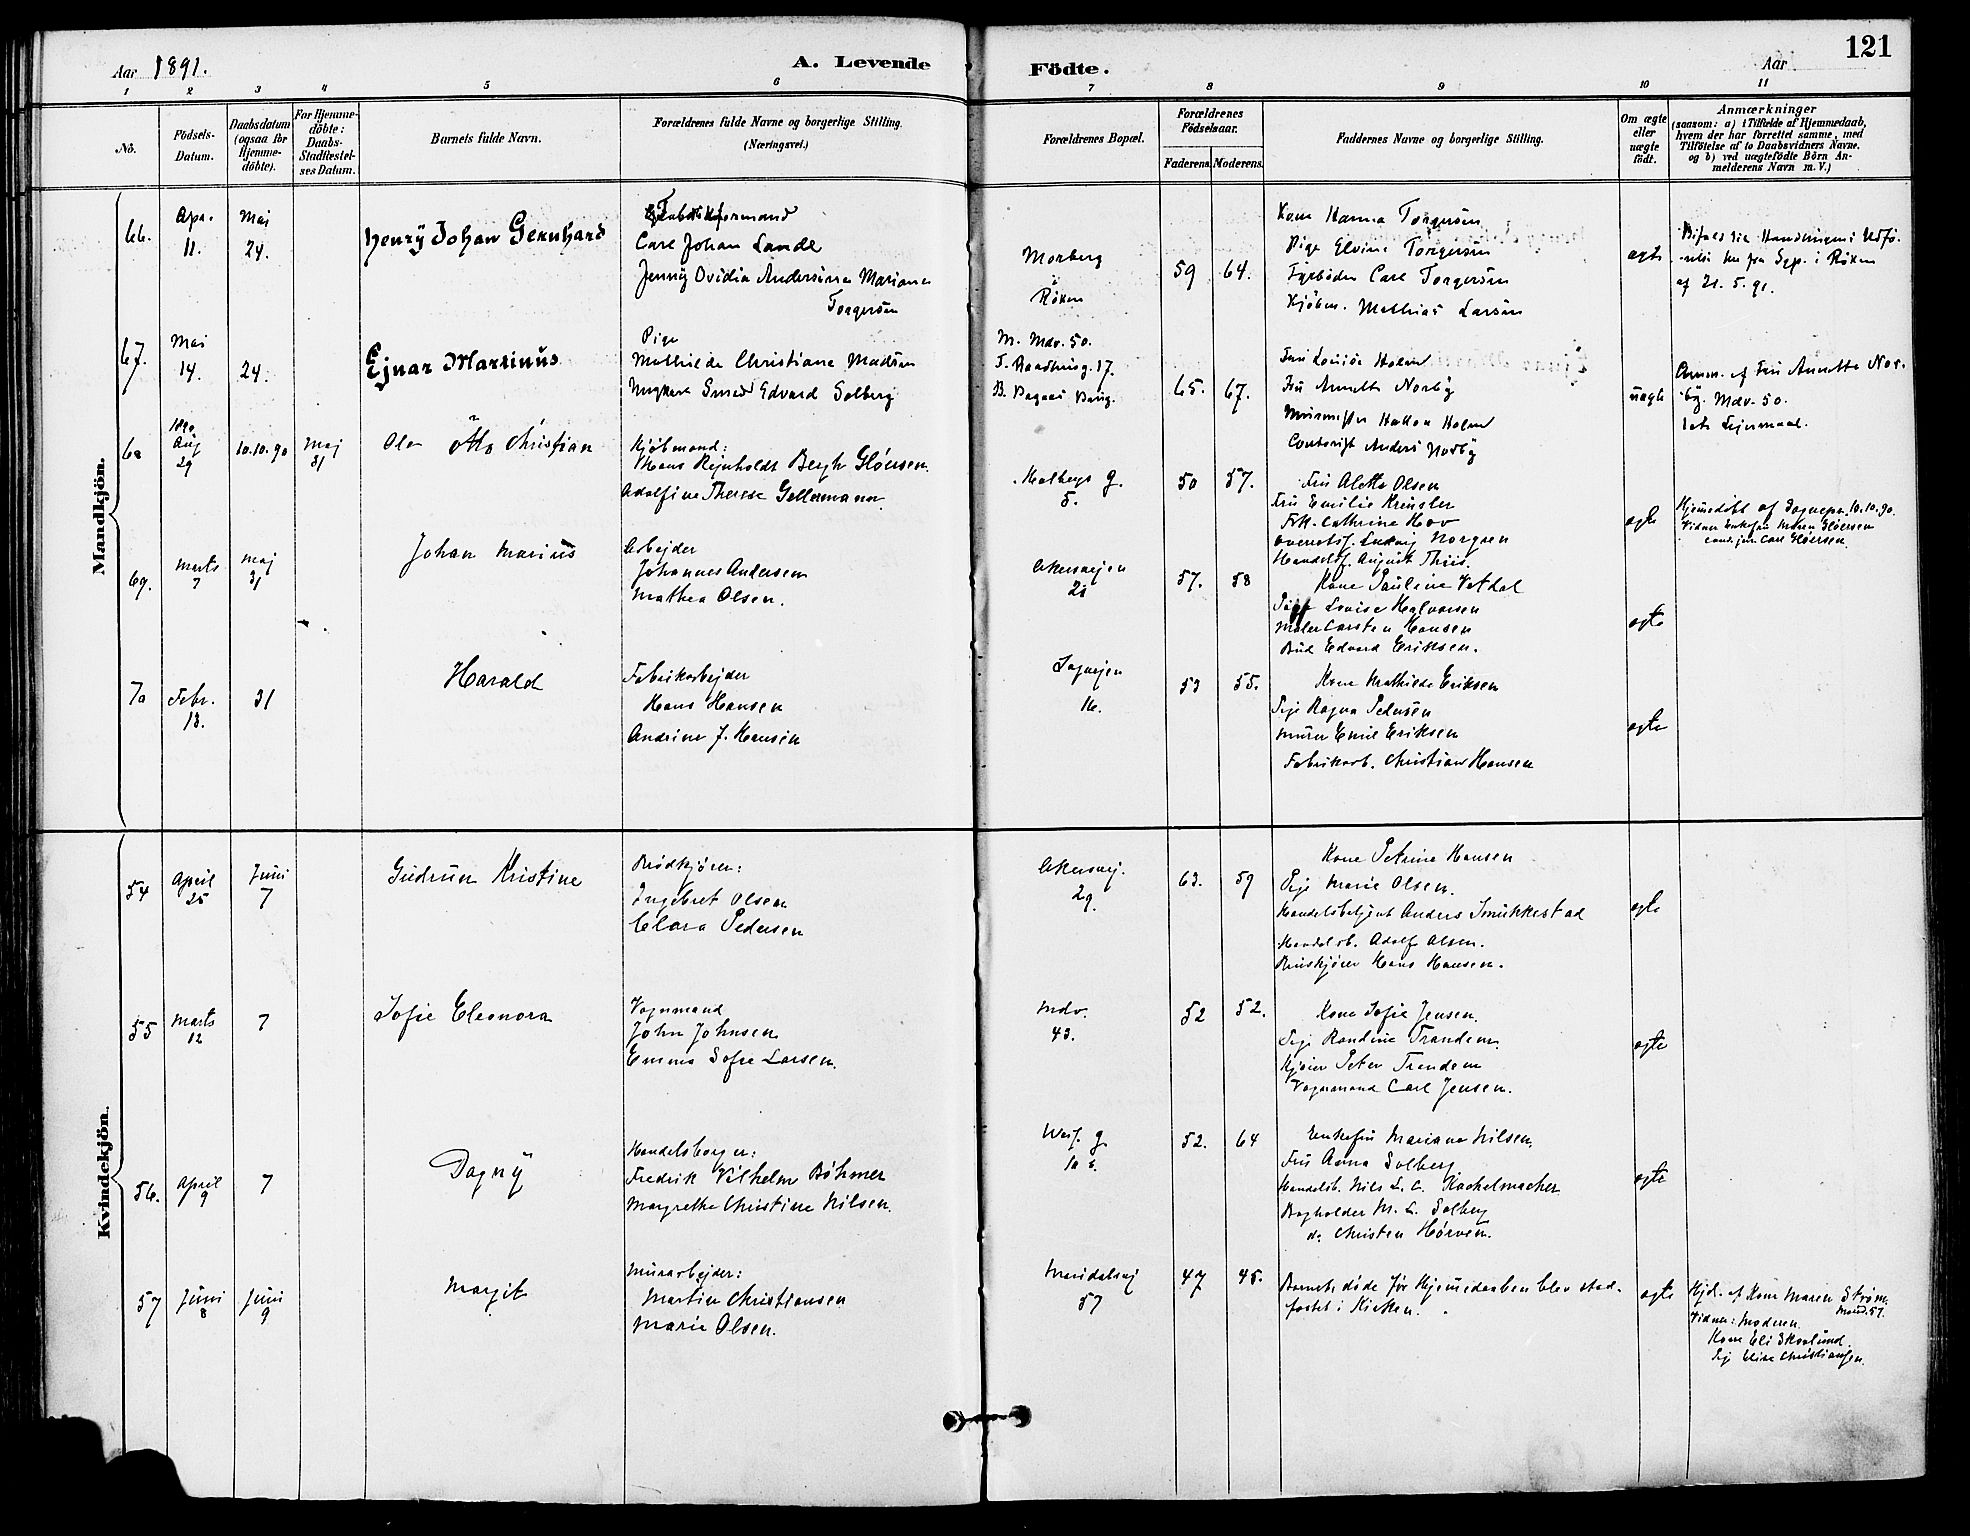 121
Aar 1891.
A. Levende Födte.
Aar
1 2 3 4 5 6 7 8 9 10 11
No.
Födsels-Datum.
Daabsdatum (ogsaa for Hjemme-döbte).
For Hjemme-döbte: Daabs-Stadfæstel-ses Datum.
Barnets fulde Navn.
Forældrenes fulde Navne og borgerlige Stilling.
(Næringsvei.)
Forældrenes Bopæl.
Forældrenes Födselsaar.
Faderens. Moderens.
Faddernes Navne og borgerlige Stilling.
Om ægte eller uægte födt.
Anmærkninger
(saasom: a) i Tilfælde af Hjemmedaab,
hvem der har forrettet samme, med
Tilföielse af to Daabsvidners Navne.
og b) ved uægtefödte Börn An-
melderens Navn m. V.)
Mandkjön.
66.
Apr. 11.
Mai 24.
Henrÿ Johan Gernhard
Fabrikformand
Carl Johan Lande
Jennÿ Ovidia Andersine Mariane
Torgersen
Morberg
Røken
59 64.
Kone Hanna Torgersen
Pige Elvine Torgersen
Fyrbøder Carl Torgersen
Kjøbm. Mathias Larsen
ægte
af 21. 5. 91.
67.
Mai 14.
24.
Ejnar Marsinus
Pige
Mathilde Christiane Madsen
Ungkarl Smed Edvard Solberg
M. Mdv. 50.
65. 67.
Fru Louise Holm
Fru Annette Norby
Murmester Hakon Holm
Contorist Anders Norby
uægte
Anm. af Fru Annette Nor-
by. Mdv. 50.
1ste Lejermaal.
68
1890 Aug 29
10.10.90
Maj 31
Ole Otto Christian
Kjøbmand:
Hans Rejnholdt Bergh Gløersen.
Adolfine Therese Gellermann
Holbergs G.
5.
50 57.
Fru Alette Olsen
Fru Emilie Krensler
Frk. Cathrine Hov
Overretss. Ludvig Norgren
Handelsf. August Thiis.
ægte
Hjemedøbt af Sognepr. 10.10.90.
Vidner Enkefru Maren Gløersen
cand. jur. Carl Gløersen.
69.
Marts 7
Maj 31
Johan Marius
Arbejder
Johannes Andersen
Mathea Olsen.
Akersvejen
28
57. 58
Kone Pauline Vetdal
Pige Lovise Halvorsen
Maler Carsten Hansen
Bud Edvard Eriksen.
ægte
70
Febr. 18.
31
Harald
Fabrikarbejder
Hans Hansen
Andrine J. Hansen
Sagvejen
16.
53 55.
Kone Mathilde Eriksen
Pige Ragna Pedersen
Murer Emil Eriksen
Fabrikarb. Christian Hansen
ægte
Kvindekjön.
54
April 25
Juni 7
Gudrun Kristine
Brødkjører:
Ingebret Olsen
Clara Pedersen
Akersvej.
29.
63. 59
Kone Petrine Hansen
Pige Marie Olsen.
Handelsbetjent Anders Smukkestad
Handelsb. Adolf Olsen.
Bruskjører Hans Hansen.
ægte
55
Marts 12
7
Sofie Eleonora
Vognmand
John Johnsen
Emma Sofie Larsen.
Mdv.
43.
52 52.
Kone Sofie Jensen.
Pige Randine Trandem.
Kjører Peter Trandem
Vognmand Carl Jensen.
ægte
56.
April 9
7
Dagnÿ
Handelsborger:
Fredrik Vilhelm Bøhmer
Margrethe Christine Nilsen.
52. 64
Enkefru Mariane Nilsen.
Fru Anna Solberg
Handelsb. Nils L. C. Kachelmacher
Bogholder M. L. Solberg
do Christen Hørven.
ægte
57
Juni 8
Juni 9
Margit
Murarbejder:
Martin Christiansen
Marie Olsen.
Maridalsvej
57
47 45.
Barnet døde før Hjemedaaben blev stad-
fæstet i Kirken.
ægte
Hjd. af Kone Maren Strøm.
Marid. 57.
Vidner: Moderen.
Kone Eli Skoglund.
Pige Elise Christiansen.